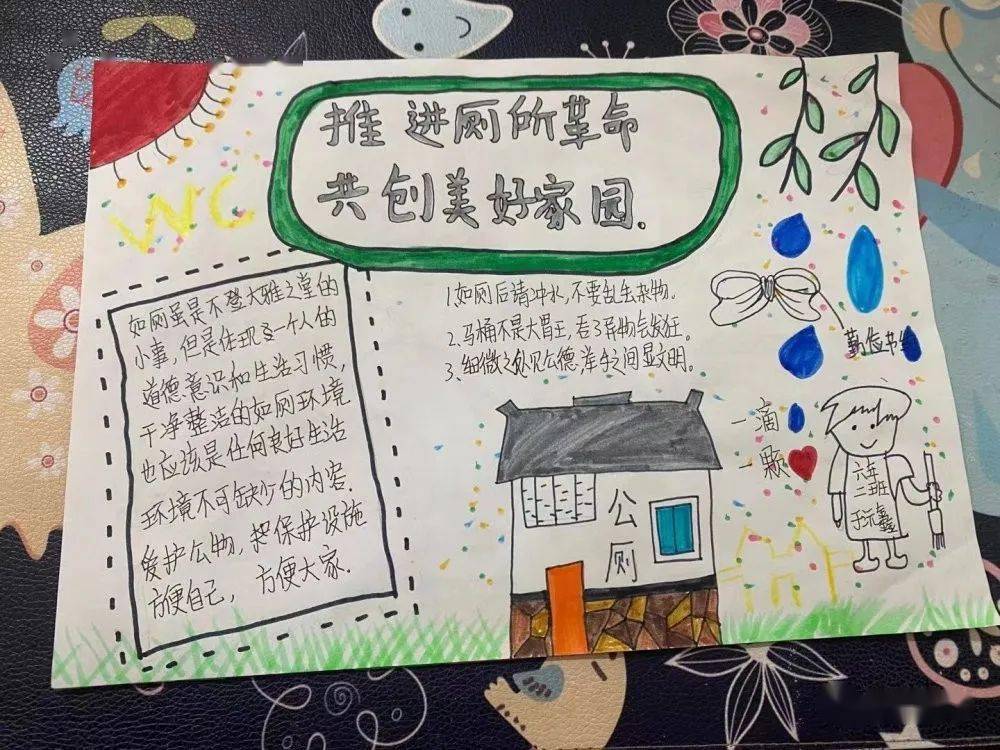 推进厕所革命
共创美好家园.
WC
如厕虽是不登大雅之堂的
小事,但是体现了一个人的
道德意识和生活习惯,
干净整洁的如厕环境
也应该是任何良好生活
环境不可缺少的内容.
爱护公物,把保护设施
方便自己,方便大家.
1.如厕后请冲水,不要乱丢杂物。
2.马桶不是大胃王,吞了异物会发狂。
3.细微之处见公德,举手之间显文明。
公
厕
一滴
一颗
六年
二班
于沅鑫